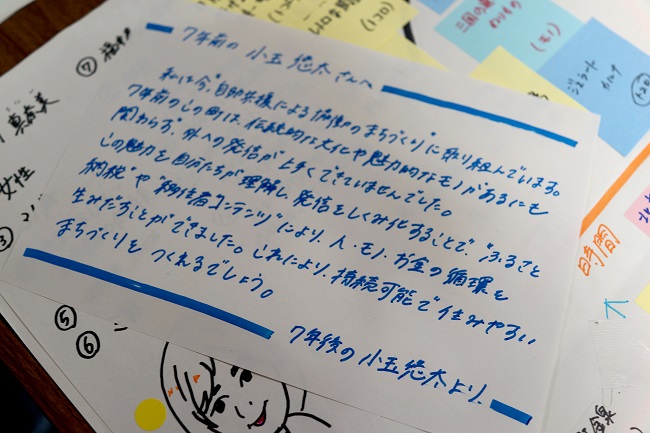 7年前の 小玉 悠太さんへ
私は今、"自助共援による備助のまちづくり"に取り組んでいます。
7年前のこの町は、伝統的な文化や魅力的なモノがあるにも
関わらず、外への発信が上手くできていませんでした。
この魅力を自分たちが理解し、発信をしくみ化することで、"ふるさと
納税"や"移住者コンテンツ"により、人・モノ・お金の循環を
生みだすことができました。これにより、持続可能で住みやすい
まちづくりを つくれるでしょう。
7年後の 小玉悠太より、
⑦
女性
③
⑤
⑥
時間
ジェラート